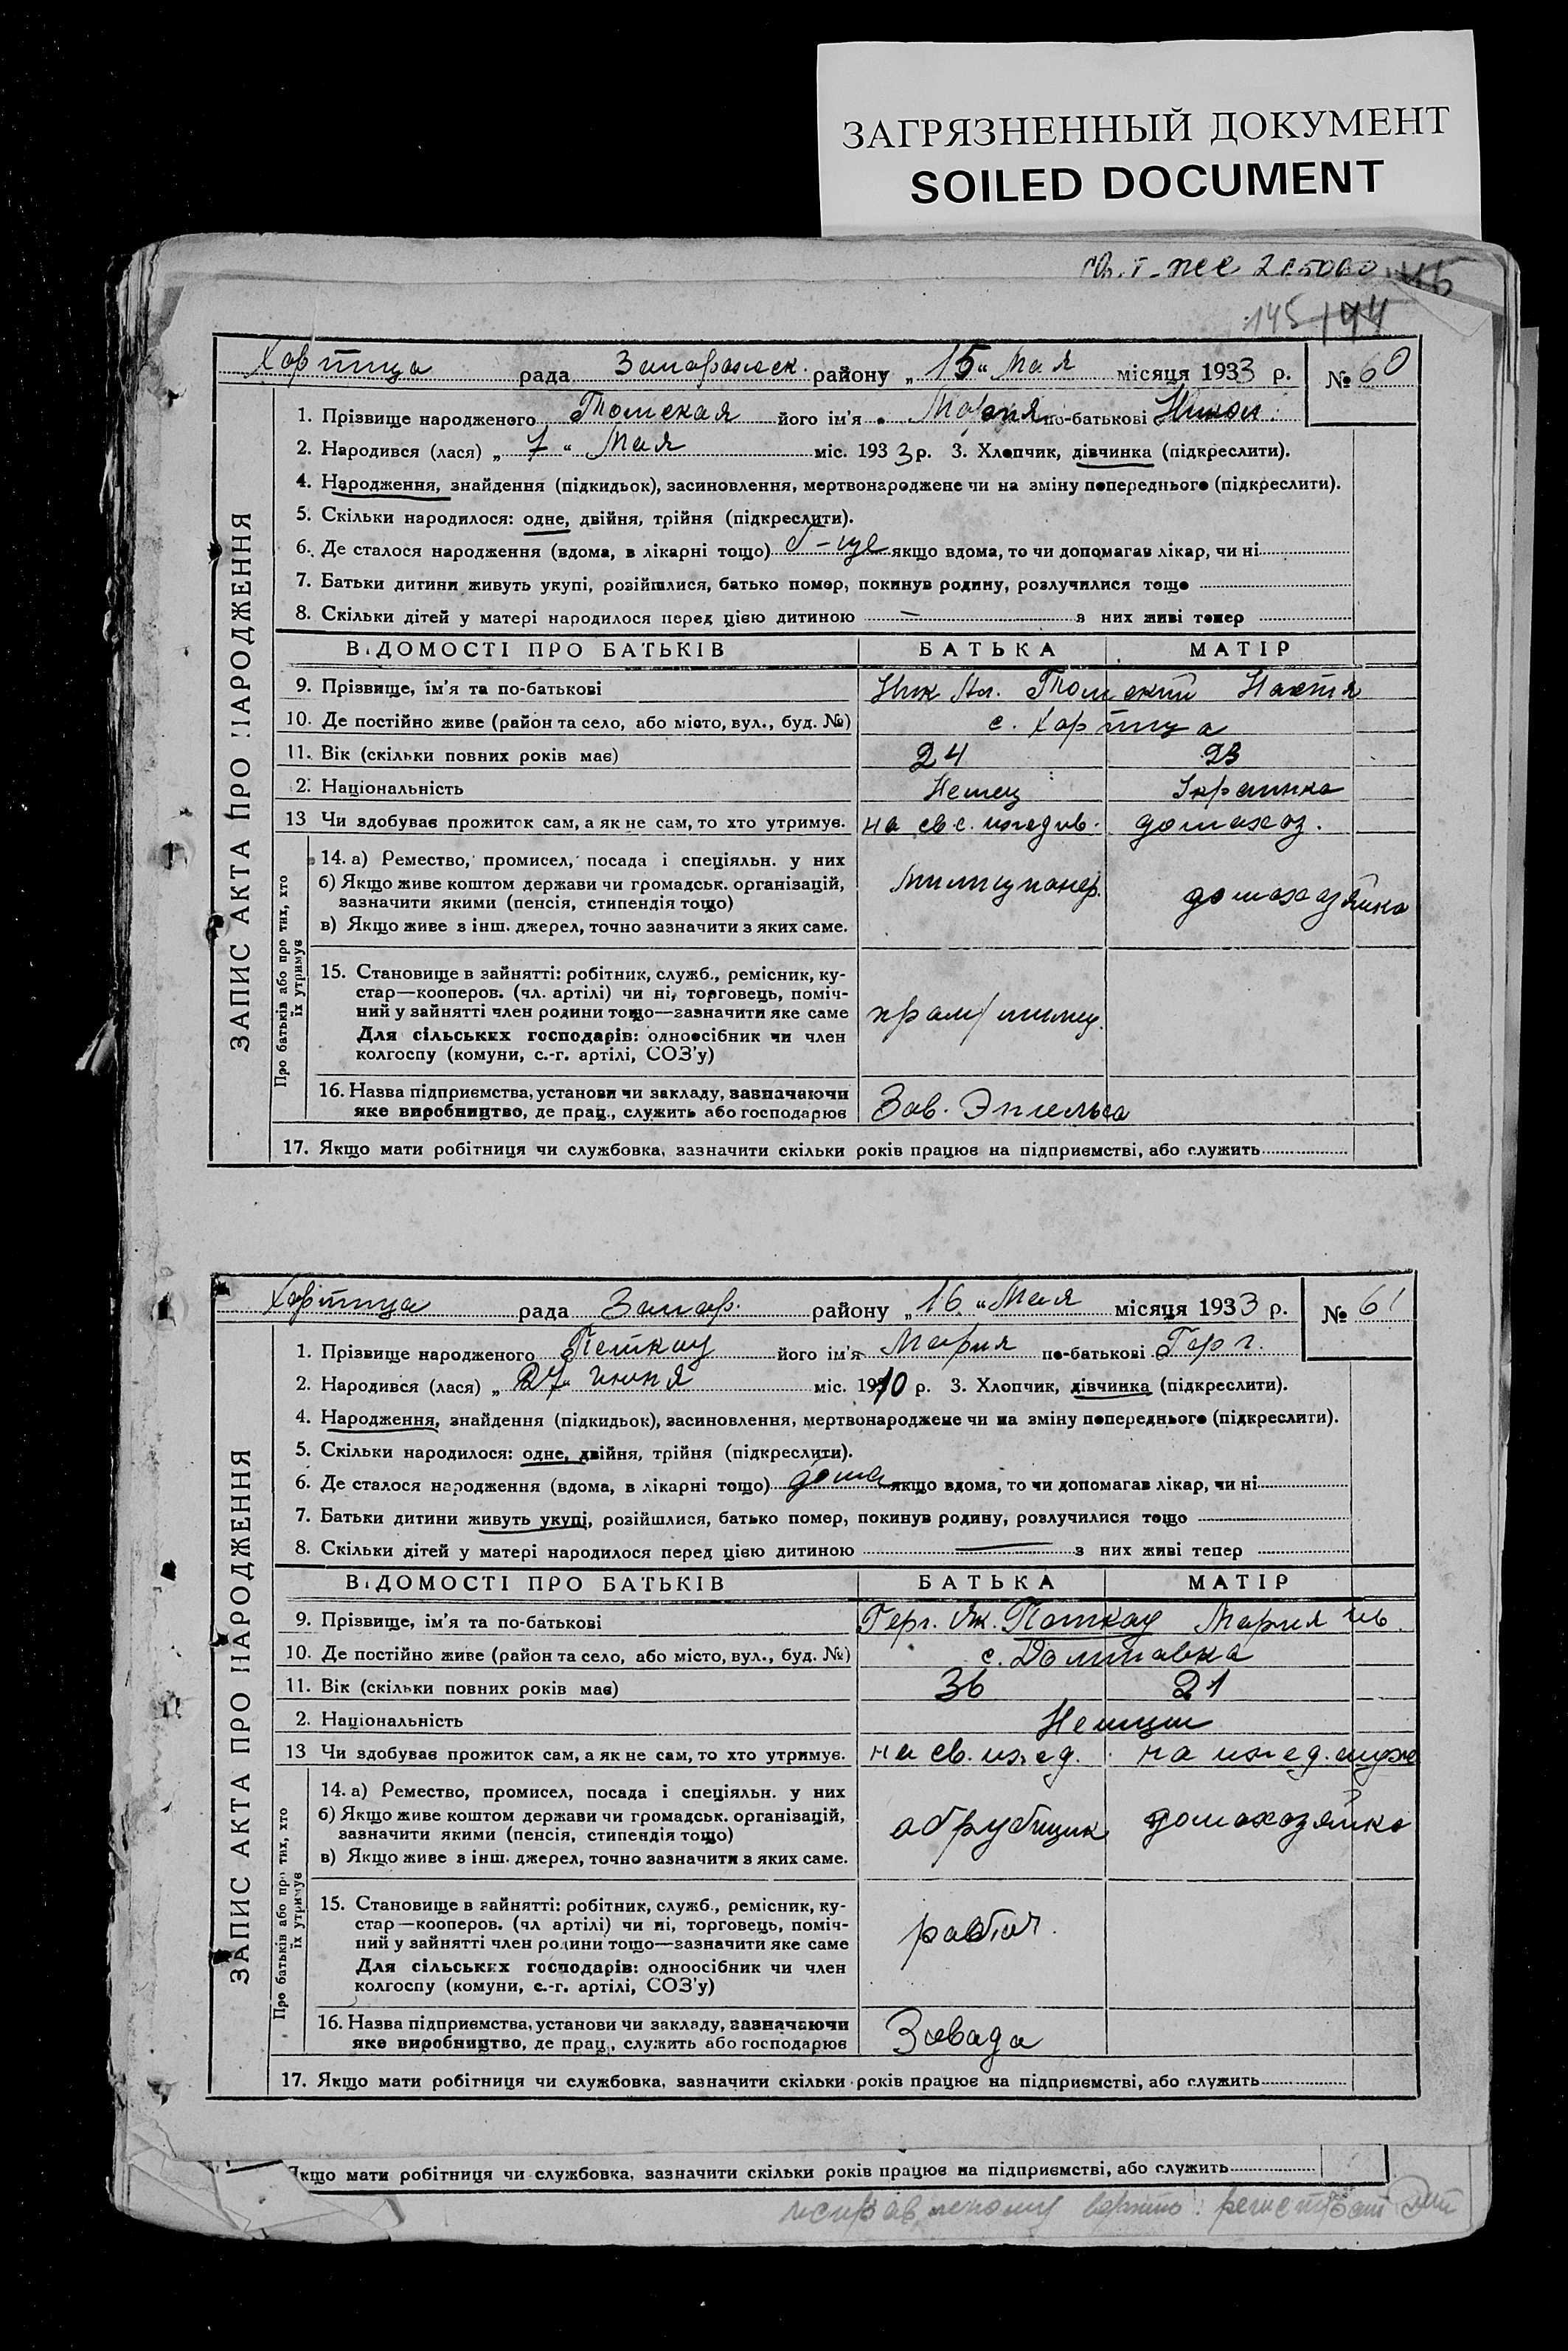 ЗАГРЯЗНЕННЫЙ ДОКУМЕНТ
SOILED DOCUMENT
145 144
Хортица рада Запорожск. району „15“ Мая місяця 1933 р. № 60
ЗАПИС АКТА ПРО НАРОДЖЕННЯ
1. Прізвище народженого Томская його ім'я Мария по-батькові Никол.
2. Народився (лася) „7“ Мая міс. 1933 р. 3. Хлопчик, дівчинка (підкреслити).
4. Народження, знайдення (підкидьок), засиновлення, мертвонароджене чи на зміну попереднього (підкреслити).
5. Скільки народилося: одне, двійня, трійня (підкреслити).
6. Де сталося народження (вдома, в лікарні тощо) б-це якщо вдома, то чи допомагав лікар, чи ні
7. Батьки дитини живуть укупі, розійшлися, батько помер, покинув родину, розлучилися тощо
8. Скільки дітей у матері народилося перед цією дитиною — з них живі тепер
ВІДОМОСТІ ПРО БАТЬКІВ БАТЬКА МАТІР
9. Прізвище, ім'я та по-батькові Ник Ал. Томский Настя
10. Де постійно живе (район та село, або місто, вул., буд. №) с. Хортица
11. Вік (скільки повних років має) 24 23
2. Національність Немец Украинка
13 Чи здобуває прожиток сам, а як не сам, то хто утримує. на св. с. иждив. домохоз.
Про батьків або про тих, хто їх утримує
14. а) Ремество, промисел, посада і спеціяльн. у них
б) Якщо живе коштом держави чи громадськ. організацій,
зазначити якими (пенсія, стипендія тощо) Милиционер. домохозяйка
в) Якщо живе з інш. джерел, точно зазначити з яких саме.
15. Становище в зайнятті: робітник, служб., ремісник, ку-
стар—кооперов. (чл. артілі) чи ні, торговець, поміч-
ний у зайнятті член родини тощо—зазначити яке саме
Для сільських господарів: одноосібник чи член
колгоспу (комуни, с.-г. артілі, СОЗ'у)
16. Назва підприємства, установи чи закладу, зазначаючи
яке виробництво, де прац., служить або господарює Зав. Энгельса
17. Якщо мати робітниця чи службовка, зазначити скільки років працює на підприємстві, або служить
Хортица рада Запор. району „16“ Мая місяця 1933 р. № 61
ЗАПИС АКТА ПРО НАРОДЖЕННЯ
1. Прізвище народженого Петкау його ім'я Мария по-батькові Герг.
2. Народився (лася) „27“ июня міс. 1910 р. 3. Хлопчик, дівчинка (підкреслити).
4. Народження, знайдення (підкидьок), засиновлення, мертвонароджене чи на зміну попереднього (підкреслити).
5. Скільки народилося: одне, двійня, трійня (підкреслити).
6. Де сталося народження (вдома, в лікарні тощо) дома якщо вдома, то чи допомагав лікар, чи ні
7. Батьки дитини живуть укупі, розійшлися, батько помер, покинув родину, розлучилися тощо
8. Скільки дітей у матері народилося перед цією дитиною — з них живі тепер
ВІДОМОСТІ ПРО БАТЬКІВ БАТЬКА МАТІР
9. Прізвище, ім'я та по-батькові Герг. Як. Петкау Мария ив.
10. Де постійно живе (район та село, або місто, вул., буд. №)
11. Вік (скільки повних років має) 36 21
2. Національність Немцы
13 Чи здобуває прожиток сам, а як не сам, то хто утримує. на св. ижед. на ижед. мужа
Про батьків або про тих, хто їх утримує
14. а) Ремество, промисел, посада і спеціяльн. у них
б) Якщо живе коштом держави чи громадськ. організацій,
зазначити якими (пенсія, стипендія тощо) обрубщик домохозяйка
в) Якщо живе з інш. джерел, точно зазначити з яких саме.
15. Становище в зайнятті: робітник, служб., ремісник, ку-
стар—кооперов. (чл артілі) чи ні, торговець, поміч-
ний у зайнятті член родини тощо—зазначити яке саме рабоч.
Для сільських господарів: одноосібник чи член
колгоспу (комуни, с.-г. артілі, СОЗ'у)
16. Назва підприємства, установи чи закладу, зазначаючи
яке виробництво, де прац., служить або господарює Завода
17. Якщо мати робітниця чи службовка, зазначити скільки років працює на підприємстві, або служить
Якщо мати робітниця чи службовка, зазначити скільки років працює на підприємстві, або служить